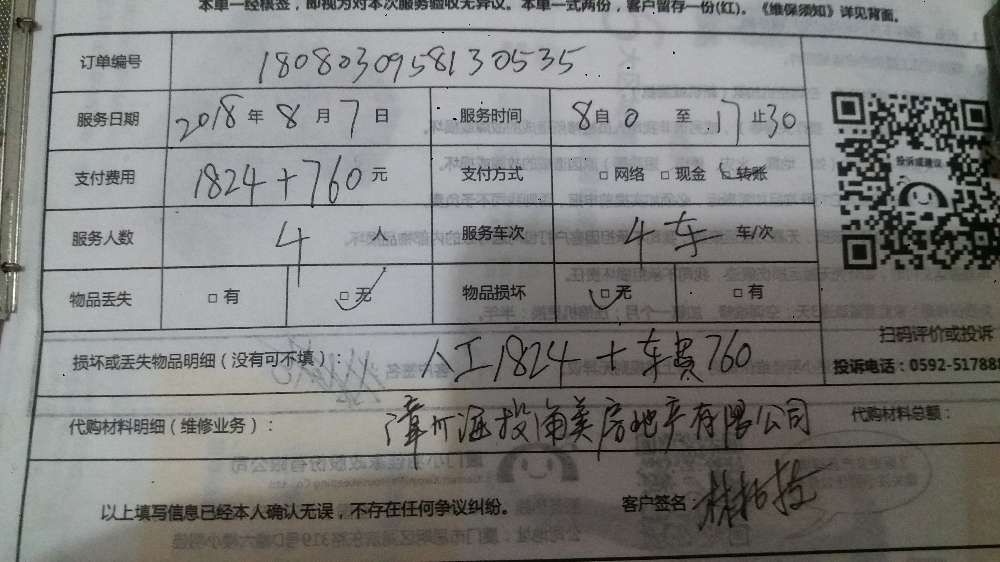 本单一经核签，即视为对本次服务验收无异议。本单一式两份，客户留存一份(红)。《维保须知》详见背面。
订单编号 1808030958130535
服务日期 2018年8月7日 服务时间 8自0至17止30
支付费用 1824+760元 支付方式 □网络 □现金 □转账
投诉或建议
服务人数 4人 服务车次 4车 车/次
物品丢失 □有 □无 物品损坏 □无 □有
扫码评价或投诉
损坏或丢失物品明细（没有可不填）： 人工1824+车费760
投诉电话：0592-517888
代购材料明细（维修业务）： 漳州海投角美房地产有限公司 代购材料总额：
以上填写信息已经本人确认无误，不存在任何争议纠纷。 客户签名：